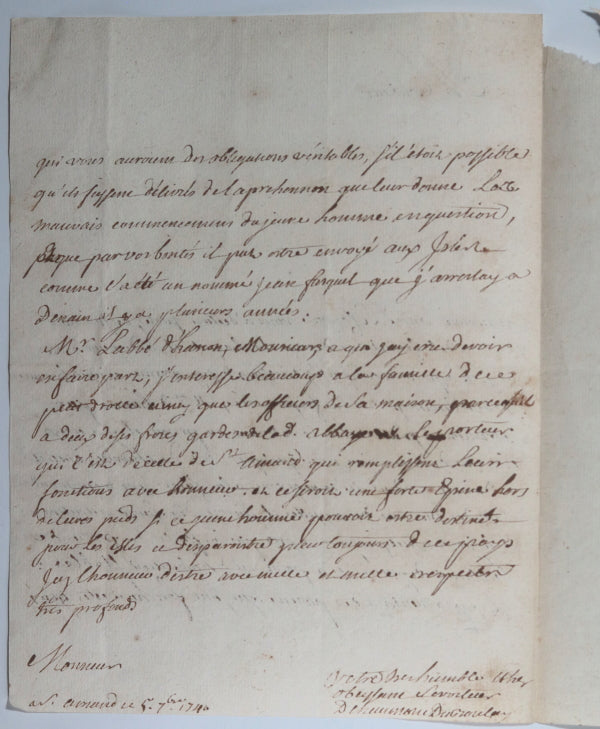 qui vous auroient des obligations véritables, s'il étoit possible
qu'ils fussent délivrés de laprehension que leur donne Les
mauvais commencemens du jeune homme en question,
que par vos bontés il put estre envoyé aux Isles
comme l'a été un nommé jean que j'arrestay a
Denain il y a plusieurs années.
Mr. Labbé d'hanon, Monsieur, a qui j'ay cru devoir
en faire part, s'interesse beaucoup a la famille de ce
petit drolle ainsy que les officiers de sa maison, parcequil
a deux de ses freres gardes de lad. abbaye le porteur
qui l'est de celle de St. Amand qui remplissent Leurs
fonctions avec honneur. et ce seroit une forte Epine hors
de leurs pieds si ce jeune homme pouvoit estre destiné
pour les isles et disparoitre pour toujours de ce pays
J'ay l'honneur d'estre avec mille et mille respects
tres profond.
Monsieur
Votre tres humble et tres
obeyssant serviteur
a St. amand ce 5. 7bre 1740